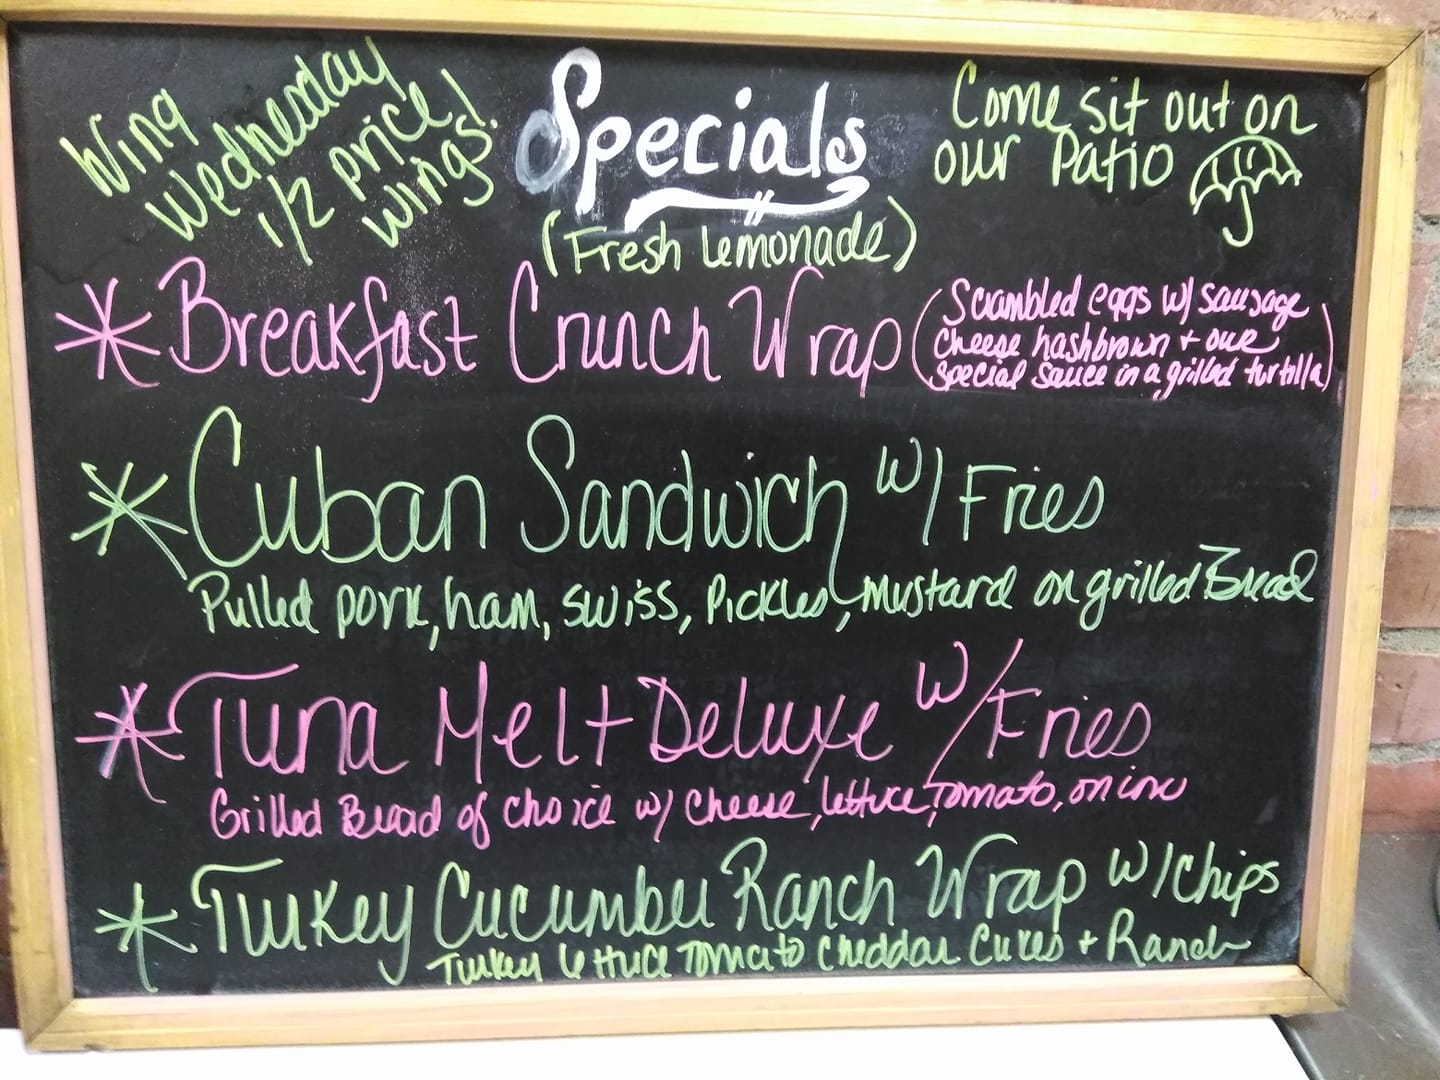 Wing
Wednesday
1/2 price
wings!
Specials
(Fresh Lemonade)
Come sit out on
our Patio
* Breakfast Crunch Wrap
(Scrambled eggs w/ sausage
cheese hashbrown + our
special sauce in a grilled tortilla)
* Cuban Sandwich w/ Fries
Pulled pork, ham, swiss, Pickles, mustard on grilled Bread
* Tuna Melt Deluxe w/ Fries
Grilled Bread of choice w/ cheese, lettuce, Tomato, onion
* Turkey Cucumber Ranch Wrap w/ chips
Turkey lettuce Tomato cheddar cukes + Ranch